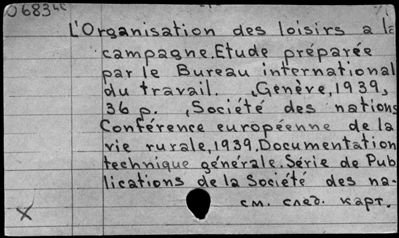 0683
L'Organisation des loisirs a la
campagne.Etude préparée
par le Bureau international
du travail. ,Genève,1939,
36 p. ,Société des nations
Conférence européenne de la
vie rurale,1939.Documentation
technique générale.Série de Pub
lications de la Société des na-
см. след. карт.
X